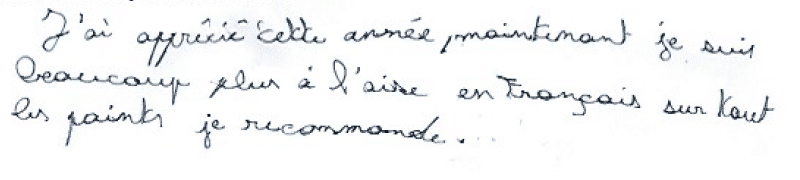 J'ai apprécié cette année, maintenant je suis
beaucoup plus à l'aise en Français sur tout
les points je recommande.